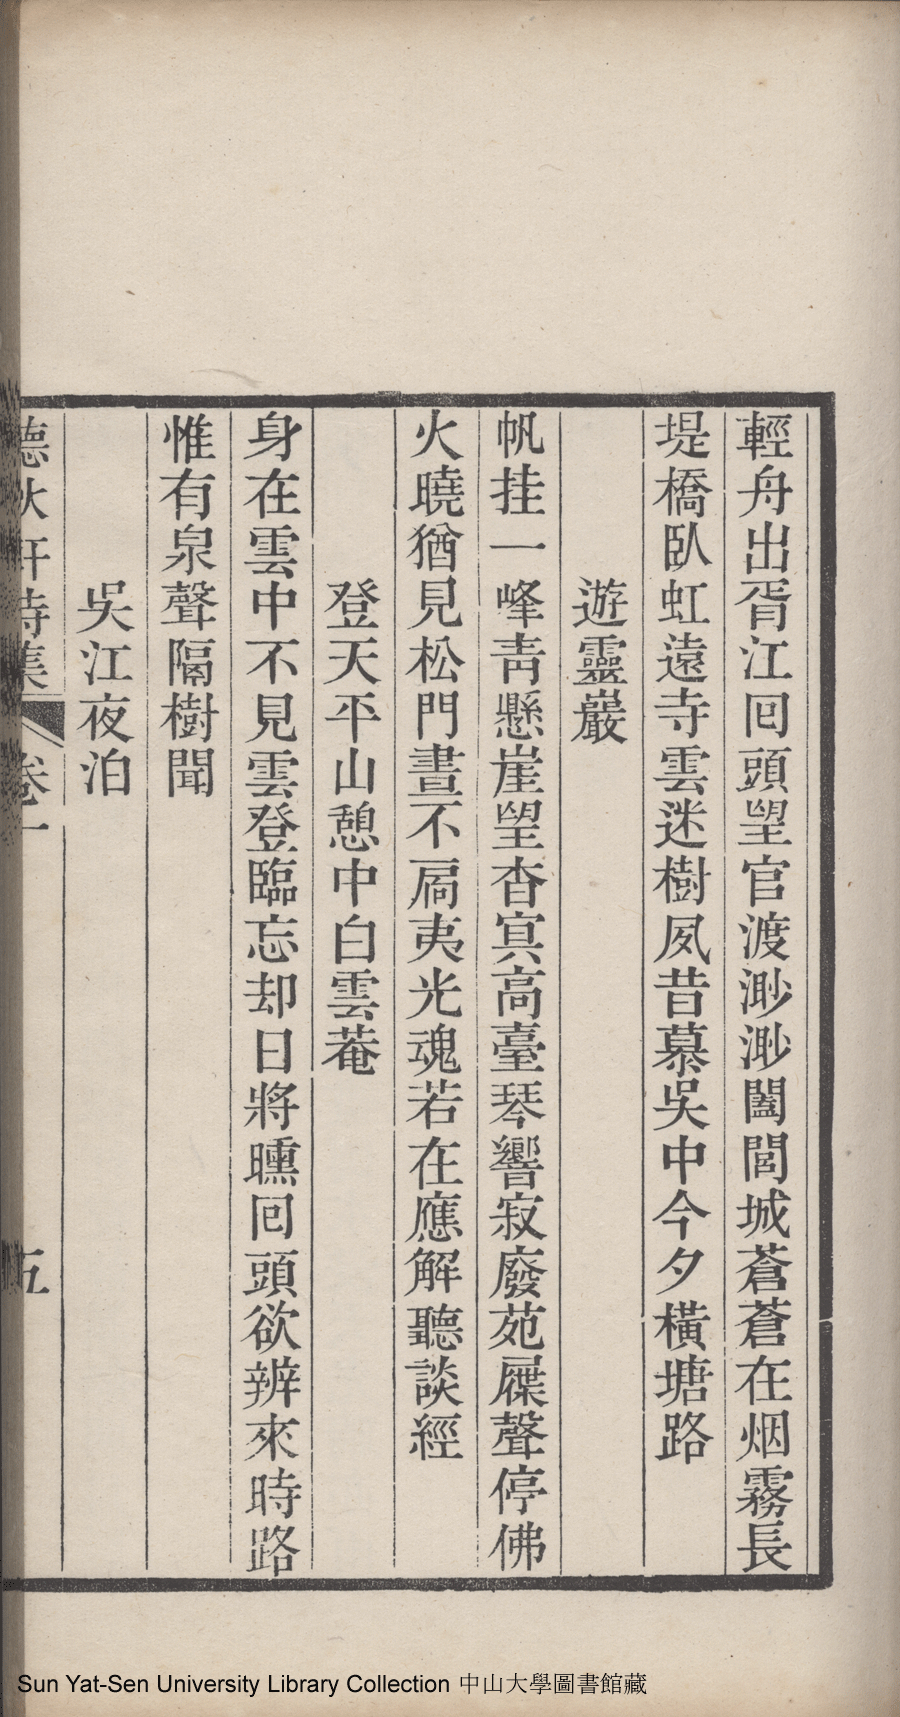 輕舟出胥江回頭望官渡渺渺闔閭城蒼蒼在烟霧長
堤橋臥虹遠寺雲迷樹夙昔慕吳中今夕橫塘路
遊靈巖
帆挂一峰靑懸崖望杳冥高臺琴響寂廢苑屧聲停佛
火曉猶見松門晝不扃夷光魂若在應解聽談經
登天平山憩中白雲菴
身在雲中不見雲登臨忘却日將曛回頭欲辨來時路
惟有泉聲隔樹聞
吳江夜泊
聽秋軒詩集 卷一 五
Sun Yat-Sen University Library Collection 中山大學圖書館藏